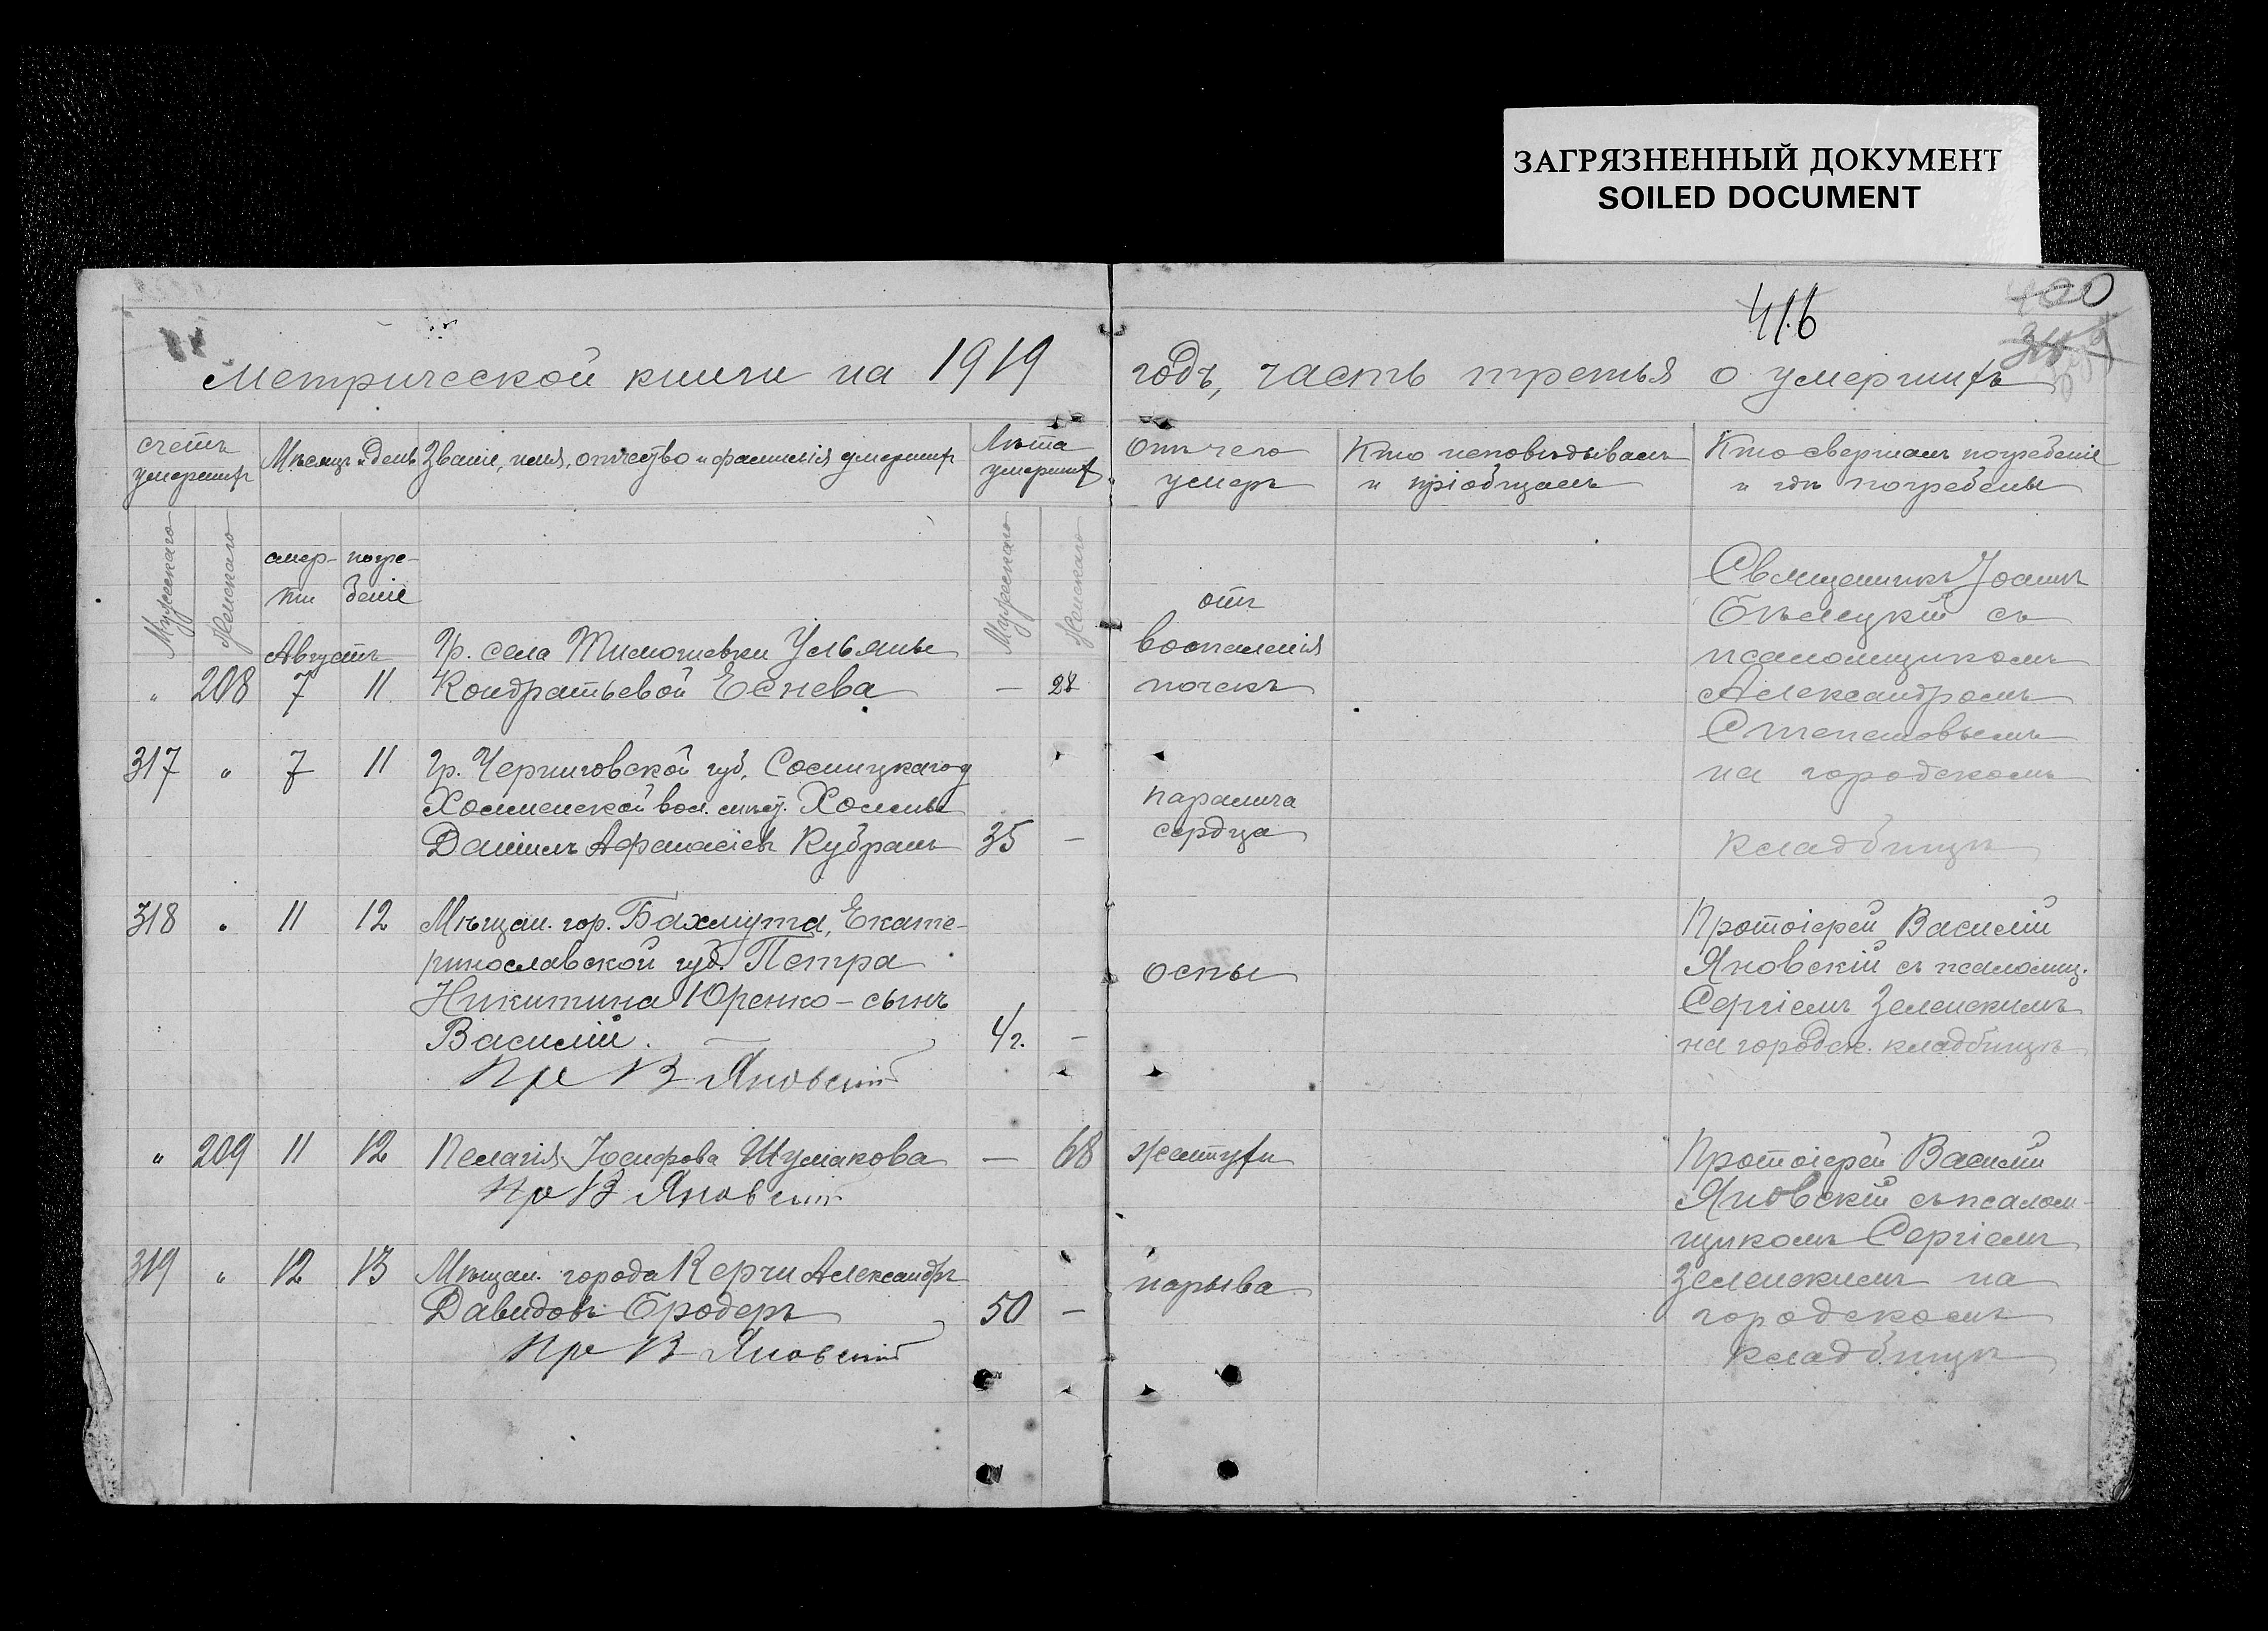 ЗАГРЯЗНЕННЫЙ ДОКУМЕНТ
SOILED DOCUMENT
416
400
Метрической книги на 1919 годъ, часть третья о умершихъ
счетъ умершихъ
Мужескаго
Женскаго
Мѣсяцъ и день
смер-ти
погре-бенiе
Званiе, имя, отчество и фамилiя умершихъ
Лѣта умершихъ
Мужескаго
Женскаго
Отъ чего умеръ
Кто исповѣдывалъ и прiобщалъ
Кто совершалъ погребенiе и гдѣ погребены
Августъ
" 208 7 11
Гр. села Тимошевки Ульяны
Кондратьевой Еснева — 28
отъ
воспаленiя
почекъ
Священникъ Iоаннъ
Бѣлецкiй съ
псаломщикомъ
Александромъ
Степановымъ
на городскомъ
кладбищѣ
317 " 7 11
Гр. Черниговской губ, Сосницкаго у
Холменской вол. мѣст. Холмы
Данiилъ Афанасiевъ Кубракъ 35 —
паралича
сердца
318 " 11 12
Мѣщан. гор. Бахмута, Екате-
ринославской губ. Петра
Никитина Юренко - сынъ
Василiй. — 4 г. —
Пр В Яновскiй
оспы
Протоiерей Василiй
Яновскiй съ псаломщ.
Сергiемъ Зеленскимъ
на городск. кладбищѣ
" 209 11 12
Пелагiя Iосифова Шумакова — 68
Пр В Яновскiй
желтухи
Протоiерей Василiй
Яновскiй съ псалом-
щикомъ Сергiемъ
Зеленскимъ на
городскомъ
кладбищѣ
319 " 12 13
Мѣщан. города Керчи Александръ
Давидовъ Бродеръ 50 —
Пр В Яновскiй
нарыва